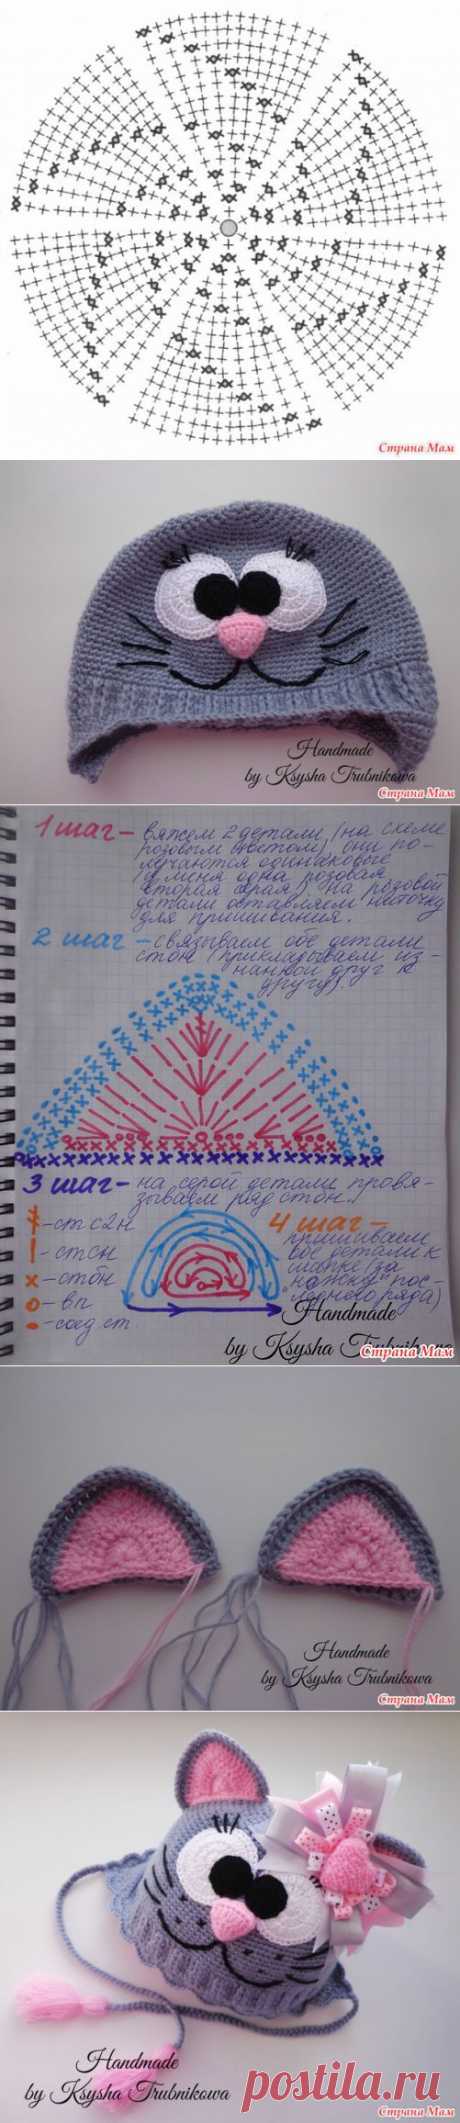 Страна Мам
Handmade
by Ksysha Trubnikowa
Страна Мам
1 шаг – вяжем 2 детали (на схеме
розовым цветом) они по-
лучаются одинаковые
(у меня одна розовая
вторая серая) на розовой
детали оставляем ниточку
для пришивания.
2 шаг – связываем обе детали
стбн (прикладываем из-
нанкой друг к
другу).
3 шаг – на серой детали провя-
зываем ряд стбн.
– ст с2н
– стсн
x – стбн
o – вп
– соед.ст.
4 шаг –
пришиваем
все детали к
шапке (за
"ножку" пос-
леднего ряда)
Handmade
by Ksysha Trubnikowa
Страна Мам
Handmade
by Ksysha Trubnikowa
Страна Мам
Handmade
by Ksysha Trubnikowa
postila.ru
Страна Мам